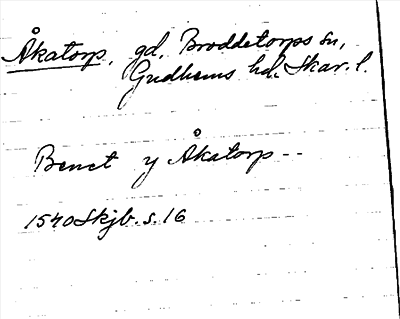 Åkatorp, gd, Broddetorps sn,
Gudhems hd. Skar. l.
Benct y Åkatorp --
1540 Skjb. s. 16